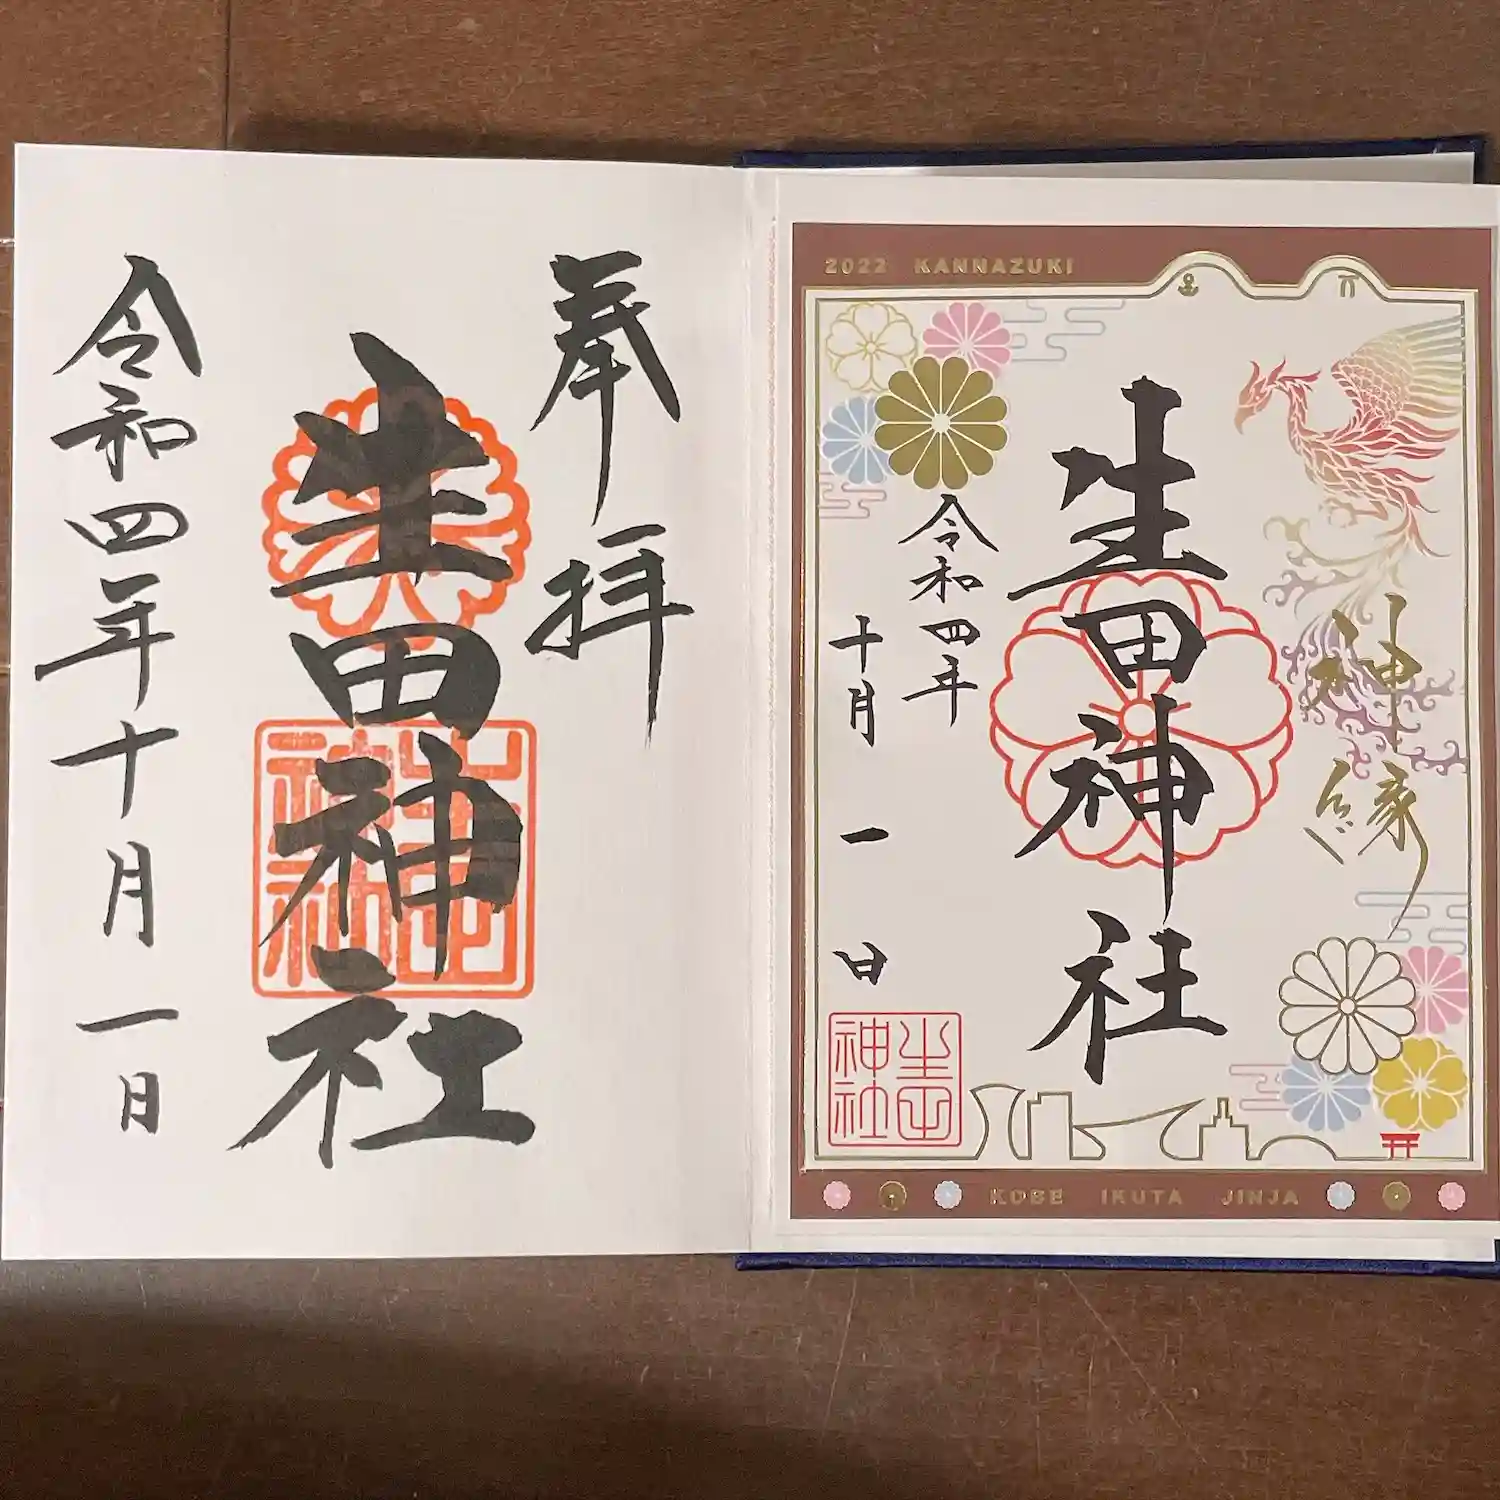 奉拝
生田神社
令和四年十月一日
生田神社
2022 KANNAZUKI
神縁
生田神社
令和四年
十月一日
生田神社
KOBE IKUTA JINJA